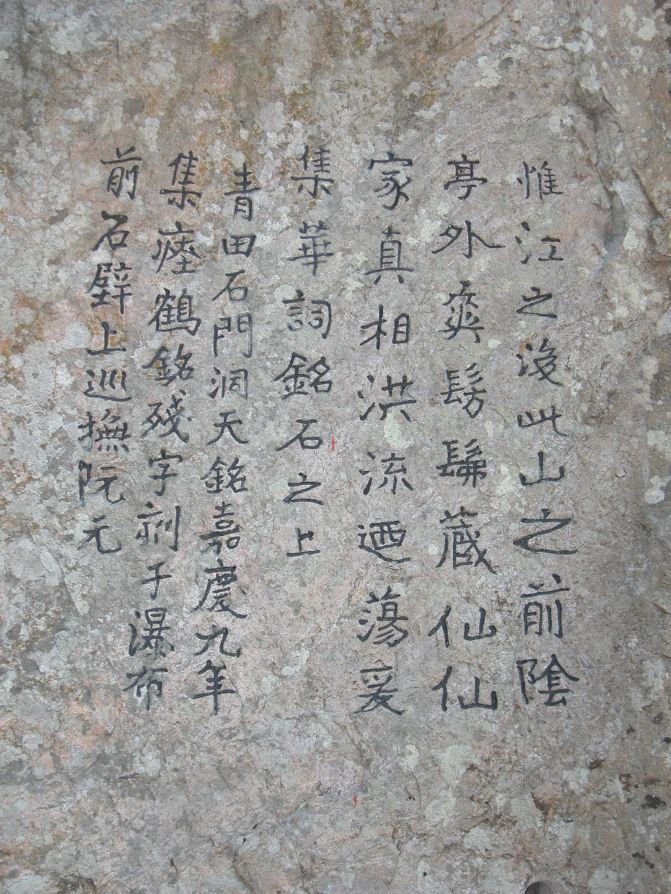 惟江之後此山之前陰
亭外爽髣髴蔵仙仙
家真相洪流迺蕩爰
集華詞銘石之上
青田石門洞天銘嘉慶九年
集瘞鶴銘殘字刻于瀑布
前石壁上巡撫阮元